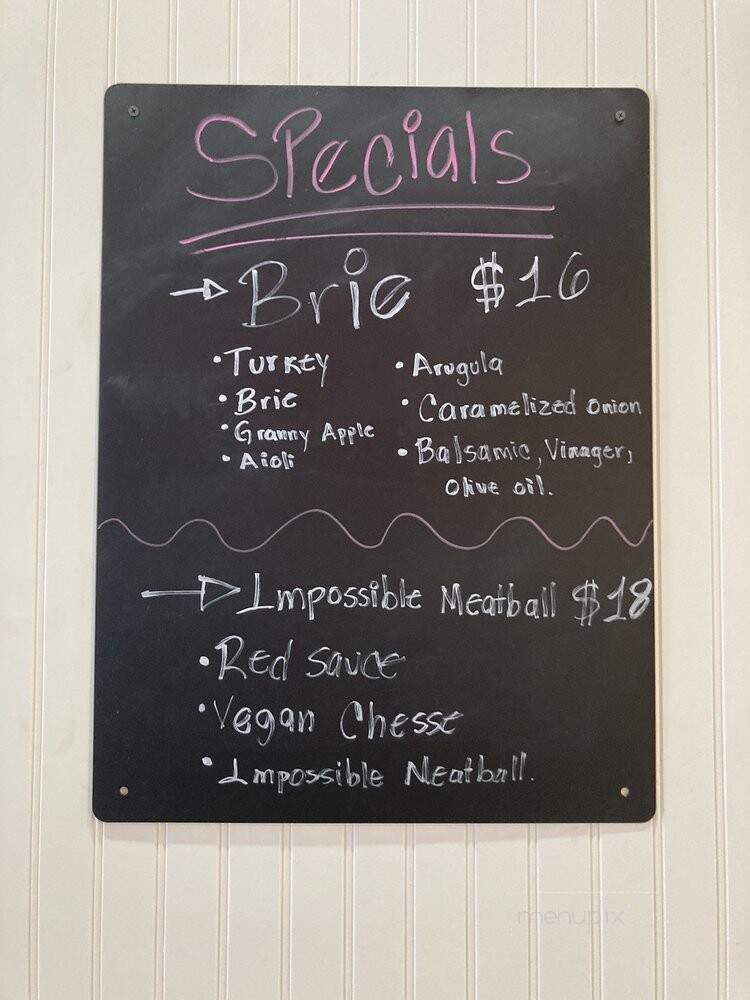 Specials
Brie $16
• Turkey
• Brie
• Granny Apple
• Aioli
• Arugula
• Caramelized onion
• Balsamic, Vinager,
Olive oil.
Impossible Meatball $18
• Red sauce
• Vegan Chesse
• Impossible Meatball.
menupix